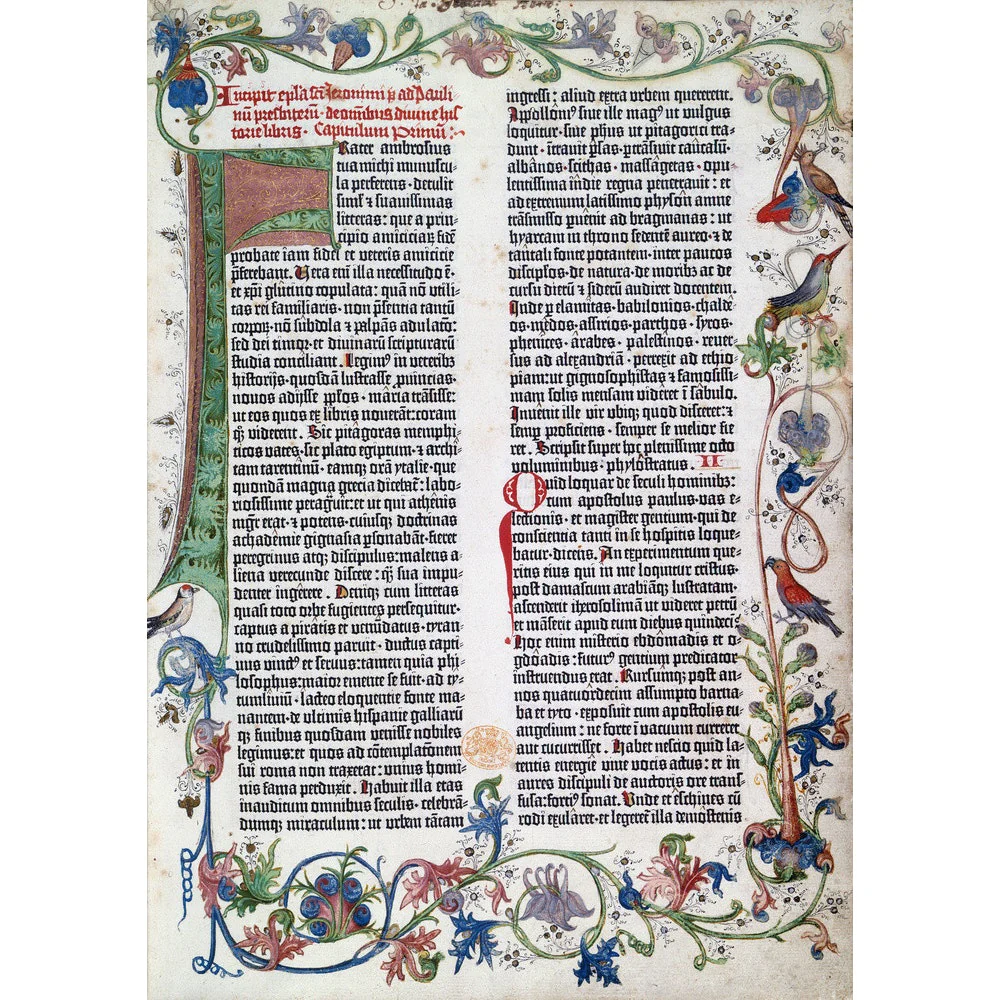 Incipit epl̄a sc̄i Jeronimi p̄ ad Pauli⸗
nū presbiterū· de om̄ibus divine his⸗
torie libris· Capitulum Primū:~
Frater ambrosius
tua michi munuscu⸗
la perferens· detulit
sim̄l et suavissimas
litteras: que a prin⸗
cipio amiciciaꝝ fidē
probate iam fidei et veteris amicicie
p̄ferebant. Vera em̄ illa necessitudo ē·
et xp̄i glutino copulata: quam nō utili⸗
tas rei familiaris· non p̄sentia tantū
corpoꝝ· nō subdola ⁊ palpās adulatō:
sed dei timoꝝ· et divinarū scripturarū
studia conciliant. Legimꝰ in veteribꝫ
historijs· quosdam lustrasse p̄vincias·
novos adijsse p̄pl̄os· maria trāsisse:
ut eos quos ex libris noverāt: coram
qꝫ viderent. Sic pitagoras memphi⸗
ticos vates· sic plato egiptum· ⁊ archi⸗
tam tarentinū· eamqꝫ orā ytalie· que
quondā magna grecia dicebat̄: labo⸗
riosissime peragravit: et ut qui athenis
mgr̄ erat· ⁊ potens· cuiusqꝫ doctrinas
achademie gignasia p̄sonabāt· fieret
peregrinus atqꝫ discipulus: malens a⸗
liena verecunde discere: qꝫ sua impu⸗
denter ingerere. Deniqꝫ cum litteras
quasi toto orbe fugientes persequitur·
captus a piratis et venūdatus· tyran⸗
no crudelissimo paruit· ductus capti⸗
vus vinctꝰ et servus: tamen quia phi⸗
losophus: maior emente se fuit· ad ty⸗
tumlivium· lacteo eloquentie fonte ma⸗
nantem· de ultimis hispanie galliarū
qꝫ finibus quosdam venisse nobiles
legimus: et quos ad cōtemplatōnem
sui roma non traxerat: unius homi⸗
nis fama perduxit. Habuit illa etas
inauditum omnibus seculis· celebrā⸗
dumqꝫ miraculum: ut urbem tātam
ingressi: aliud extra urbem quererent.
Apolloniꝰ sive ille magꝰ ut vulgus
loquitur· sive ph̄us ut pitagorici tra⸗
dunt· ītravit p̄sas· p̄trāsivit caucasū·
albanos· scithas· massagetas· opu⸗
lentissima indie regna penetravit: et
ad extremum latissimo physon amne
trāsmisso p̄venit ad bragmanas: ut
hyarcam in throno sedentē aureo· ⁊ de
tantali fonte potantem· inter paucos
discipl̄os· de natura· de moribꝫ ac de
cursu dierū ⁊ siderū audiret docentem.
Inde p̄ elamitas· babilonios· chalde⸗
os· medos· assirios· parthos· syros·
phenices· arabes· palestinos· rever⸗
sus ad alexandriā· perrexit ad ethio⸗
piam: ut gignosophistas ⁊ famosissi⸗
mam solis mensam videret in sabulo.
Invenit ille vir ubiqꝫ quod disceret: ⁊
semp̄ proficiens· semper se melior fie⸗
ret. Scripsit super hoc plenissime octo
voluminibus· phylostratus. II
Quid loquar de seculi hominibꝫ:
cum apostolus paulus· vas e⸗
lectionis· et magister gentium· qui de
consciencia tanti in se hospitis loque⸗
batur· dicens. An experimentum que⸗
ritis eius qui in me loquitur cristus·
post damascum arabiāqꝫ lustratam:
ascenderit iherosolimā ut videret petrū
et māserit apud eum diebus quindeci·
Hoc enim misterio ebdōmadis et o⸗
gdoadis: futurꝰ gentium predicator
instruendus erat. Rursumqꝫ post an⸗
nos quatuordecim assumpto barna⸗
ba et tyto· exposuit cum apostolis eu⸗
angelium: ne forte ī vacuum curreret
aut cucurrisset. Habet nescio quid la⸗
tentis energie vive vocis actus: et in
aures discipuli de auctoris ore trans⸗
fusa: fortiꝰ sonat. Unde et eschines cū
rodi exularet· et legeretur illa demostenis